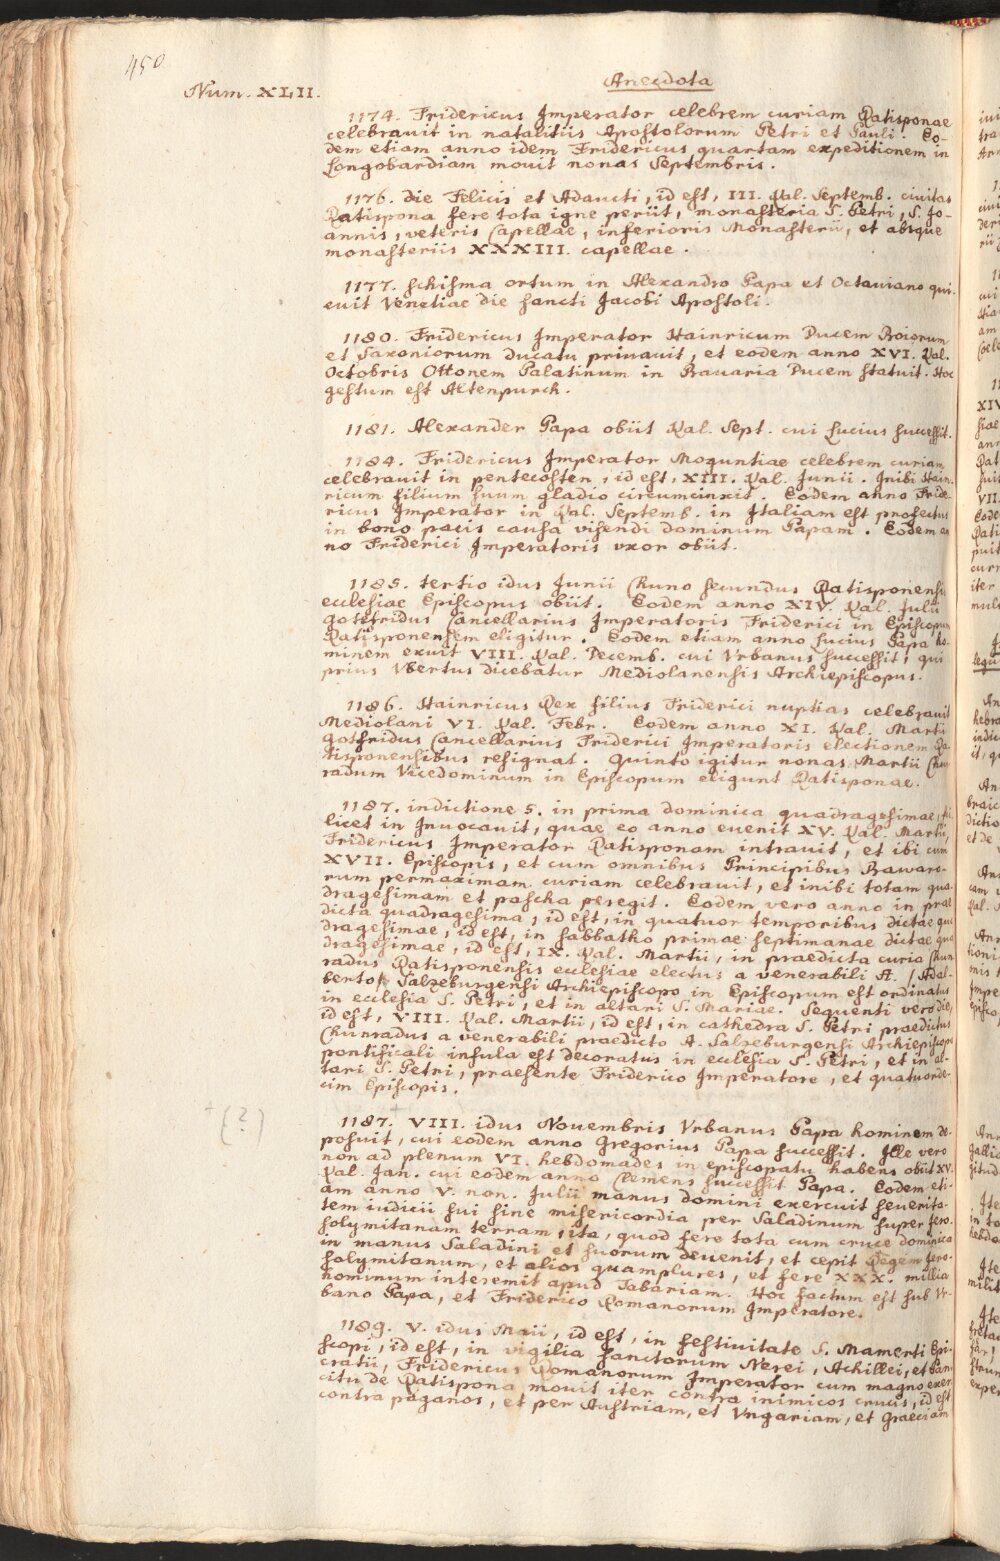 450
Anecdota
Num. XLII.
1174. Fridericus Imperator celebrem curiam Ratisponae
celebrauit in natalitiis Apostolorum Petri et Pauli. Eo-
dem etiam anno idem Fridericus quartam expeditionem in
Longobardiam mouit nonas Septembris.
1176. die Felicis et Adaucti, id est, III. Kal. Septemb. ciuitas
Ratispona fere tota igne periit, monasteria S. Petri, S. Jo-
annis, veteris Capellae, inferioris Monasterii, et absque
monasteriis XXXIII. capellae.
1177. schisma ortum in Alexandro Papa et Octauiano qui-
euit Venetiae die sancti Jacobi Apostoli.
1180. Fridericus Imperator Hainricum Ducem Boiorum
et Saxoniorum Ducatu priuauit, et eodem anno XVI. Kal.
Octobris Ottonem Palatinum in Bauaria Ducem statuit. Hoc
gestum est Altenpurch.
1181. Alexander Papa obiit Kal. Sept. cui Lucius successit.
1184. Fridericus Imperator Moguntiae celebrem curiam
celebrauit in pentecosten, id est, XIII. Kal. Junii. Inibi Hain-
ricum filium suum gladio circumcinxit. Eodem anno Fride-
ricus Imperator in Kal. Septemb. in Italiam est profectus
in bono pacis causa visendi dominum Papam. Eodem an
no Friderici Imperatoris vxor obiit.
1185. tertio idus Junii Chuno secundus Ratisponensis
ecclesiae Episcopus obiit. Eodem anno XIV. Kal. Julii
Gotefridus Cancellarius Imperatoris Friderici in Episcopum
Ratisponensem eligitur. Eodem etiam anno Lucius Papa ho-
minem exuit VIII. Kal. Decemb. cui Vrbanus successit, qui
prius Vbertus dicebatur Mediolanensis Archiepiscopus.
1186. Hainricus Rex filius Friderici nuptias celebrauit
Mediolani VI. Kal. Febr. Eodem anno XI. Kal. Martii
Gotfridus Cancellarius Friderici Imperatoris electionem Ra-
tisponensibus resignat. Quinto igitur nonas Martii Chun-
radum Vicedominum in Episcopum eligunt Ratisponae.
1187. indictione 5. in prima dominica quadragesimae, sci
licet in Inuocauit, quae eo anno euenit XV. Kal. Martii,
Fridericus Imperator Ratisponam intrauit, et ibi cum
XVII. Episcopis, et cum omnibus Principibus Bawaro-
rum permaximam curiam celebrauit, et inibi totam qua-
dragesimam et pascha peregit. Eodem vero anno in prae
dicta quadragesima, id est, in quatuor temporibus dictae qua
dragesimae, id est, in sabbatho primae septimanae dictae qua
dragesimae, id est, IX. Kal. Martii, in praedicta curia Chun
radus Ratisponensis ecclesiae electus a venerabili A. (Adal-
berto) Salzeburgensi Archiepiscopo in Episcopum est ordinatus
in ecclesia S. Petri, et in altari S. Mariae. Sequenti vero die,
id est, VIII. Kal. Martii, id est, in cathedra S. Petri praedictus
Chunradus a venerabili praedicto A. Salzeburgensi Archiepiscopo
pontificali insula est decoratus in ecclesia S. Petri, et in al-
tari S. Petri, praesente Friderico Imperatore, et quatuorde-
cim Episcopis.
+ (?)
1187. VIII. idus Nouembris Vrbanus Papa hominem de-
posuit, cui eodem anno Gregorius Papa successit. Ille vero
non ad plenum VI. hebdomades in episcopatu habens obiit XV.
Kal. Jan. cui eodem anno Clemens successit Papa. Eodem eti-
am anno V. non. Julii manus domini exercuit seuerita-
tem iudicii sui sine misericordia per Saladinum super Jero-
solymitanam terram, ita, quod fere tota cum cruce dominica
in manus Saladini et suorum deuenit, et cepit Regem Jero-
solymitanum, et alios quamplures, et fere XXX. millia
hominum interemit apud Tabariam. Hoc factum est sub Vr-
bano Papa, et Friderico Romanorum Imperatore.
1189. V. idus Maii, id est, in festiuitate S. Mamerti Epi-
scopi, id est, in vigilia sanctorum Nerei, Achillei, et Pan
cratii, Fridericus Romanorum Imperator cum magno exer
citu de Ratispona mouit iter contra inimicos crucis, id est
contra paganos, et per Austriam, et Vngariam, et Graeciam